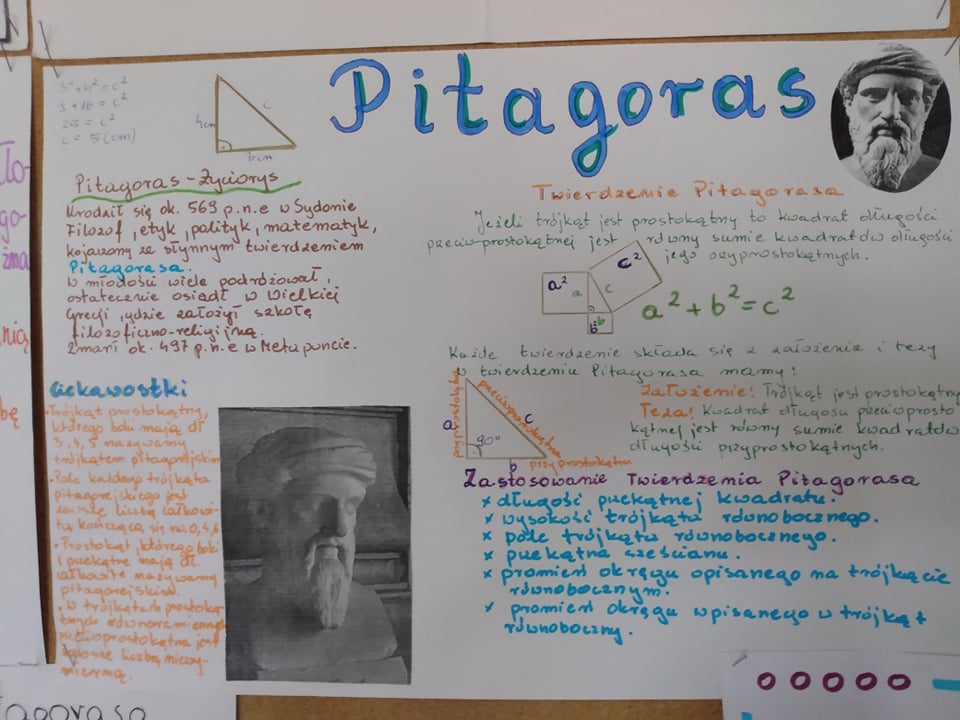 Pitagoras
3²+4²=c²
9+16=c²
25=c²
c=5(cm)
4cm
c
3cm
Pitagoras-Życiorys
Urodził się ok. 569 p.n.e w Sydonie
Filozof, etyk, polityk, matematyk,
kojarzony ze słynnym twierdzeniem
Pitagorasa.
W młodości wiele podróżował,
ostatecznie osiadł w Wielkiej
Grecji, gdzie założył szkołę
filozoficzno-religijną.
Zmarł ok. 497 p.n.e w Metaponcie.
Ciekawostki
•Trójkąt prostokątny,
którego boki mają dł
3, 4, 5 nazywamy
trójkątem pitagorejskim
•Pole każdego trójkąta
pitagorejskiego jest
zawsze liczbą całkowi-
tą kończącą się na 0,4,6
•Prostokąt, którego boki
i przekątne mają dł.
całkowite nazywamy
pitagorejskim.
•W trójkątach prostoką-
tnych równoramiennych
przeciwprostokątna jest
zawsze liczbą niewy-
mierną.
Twierdzenie Pitagorasa
Jeżeli trójkąt jest prostokątny to kwadrat długości
przeciwprostokątnej jest równy sumie kwadratów długości
jego przyprostokątnych.
a²
a
c
c²
b
b²
a²+b²=c²
Każde twierdzenie składa się z założenia i tezy
w twierdzeniu Pitagorasa mamy:
Założenie: Trójkąt jest prostokątny
Teza! Kwadrat długości przeciwprosto
kątnej jest równy sumie kwadratów
długości przyprostokątnych.
a
przyprostokątna
przeciwprostokątna
c
90°
b
przyprostokątna
Zastosowanie Twierdzenia Pitagorasa
x długość przekątnej kwadratu.
x wysokość trójkąta równobocznego.
x pole trójkąta równobocznego.
x przekątna sześcianu.
x promień okręgu opisanego na trójkącie
równobocznym.
x promień okręgu wpisanego w trójkąt
równoboczny.
ło-
go-
zna
nią
bę
tagorasa